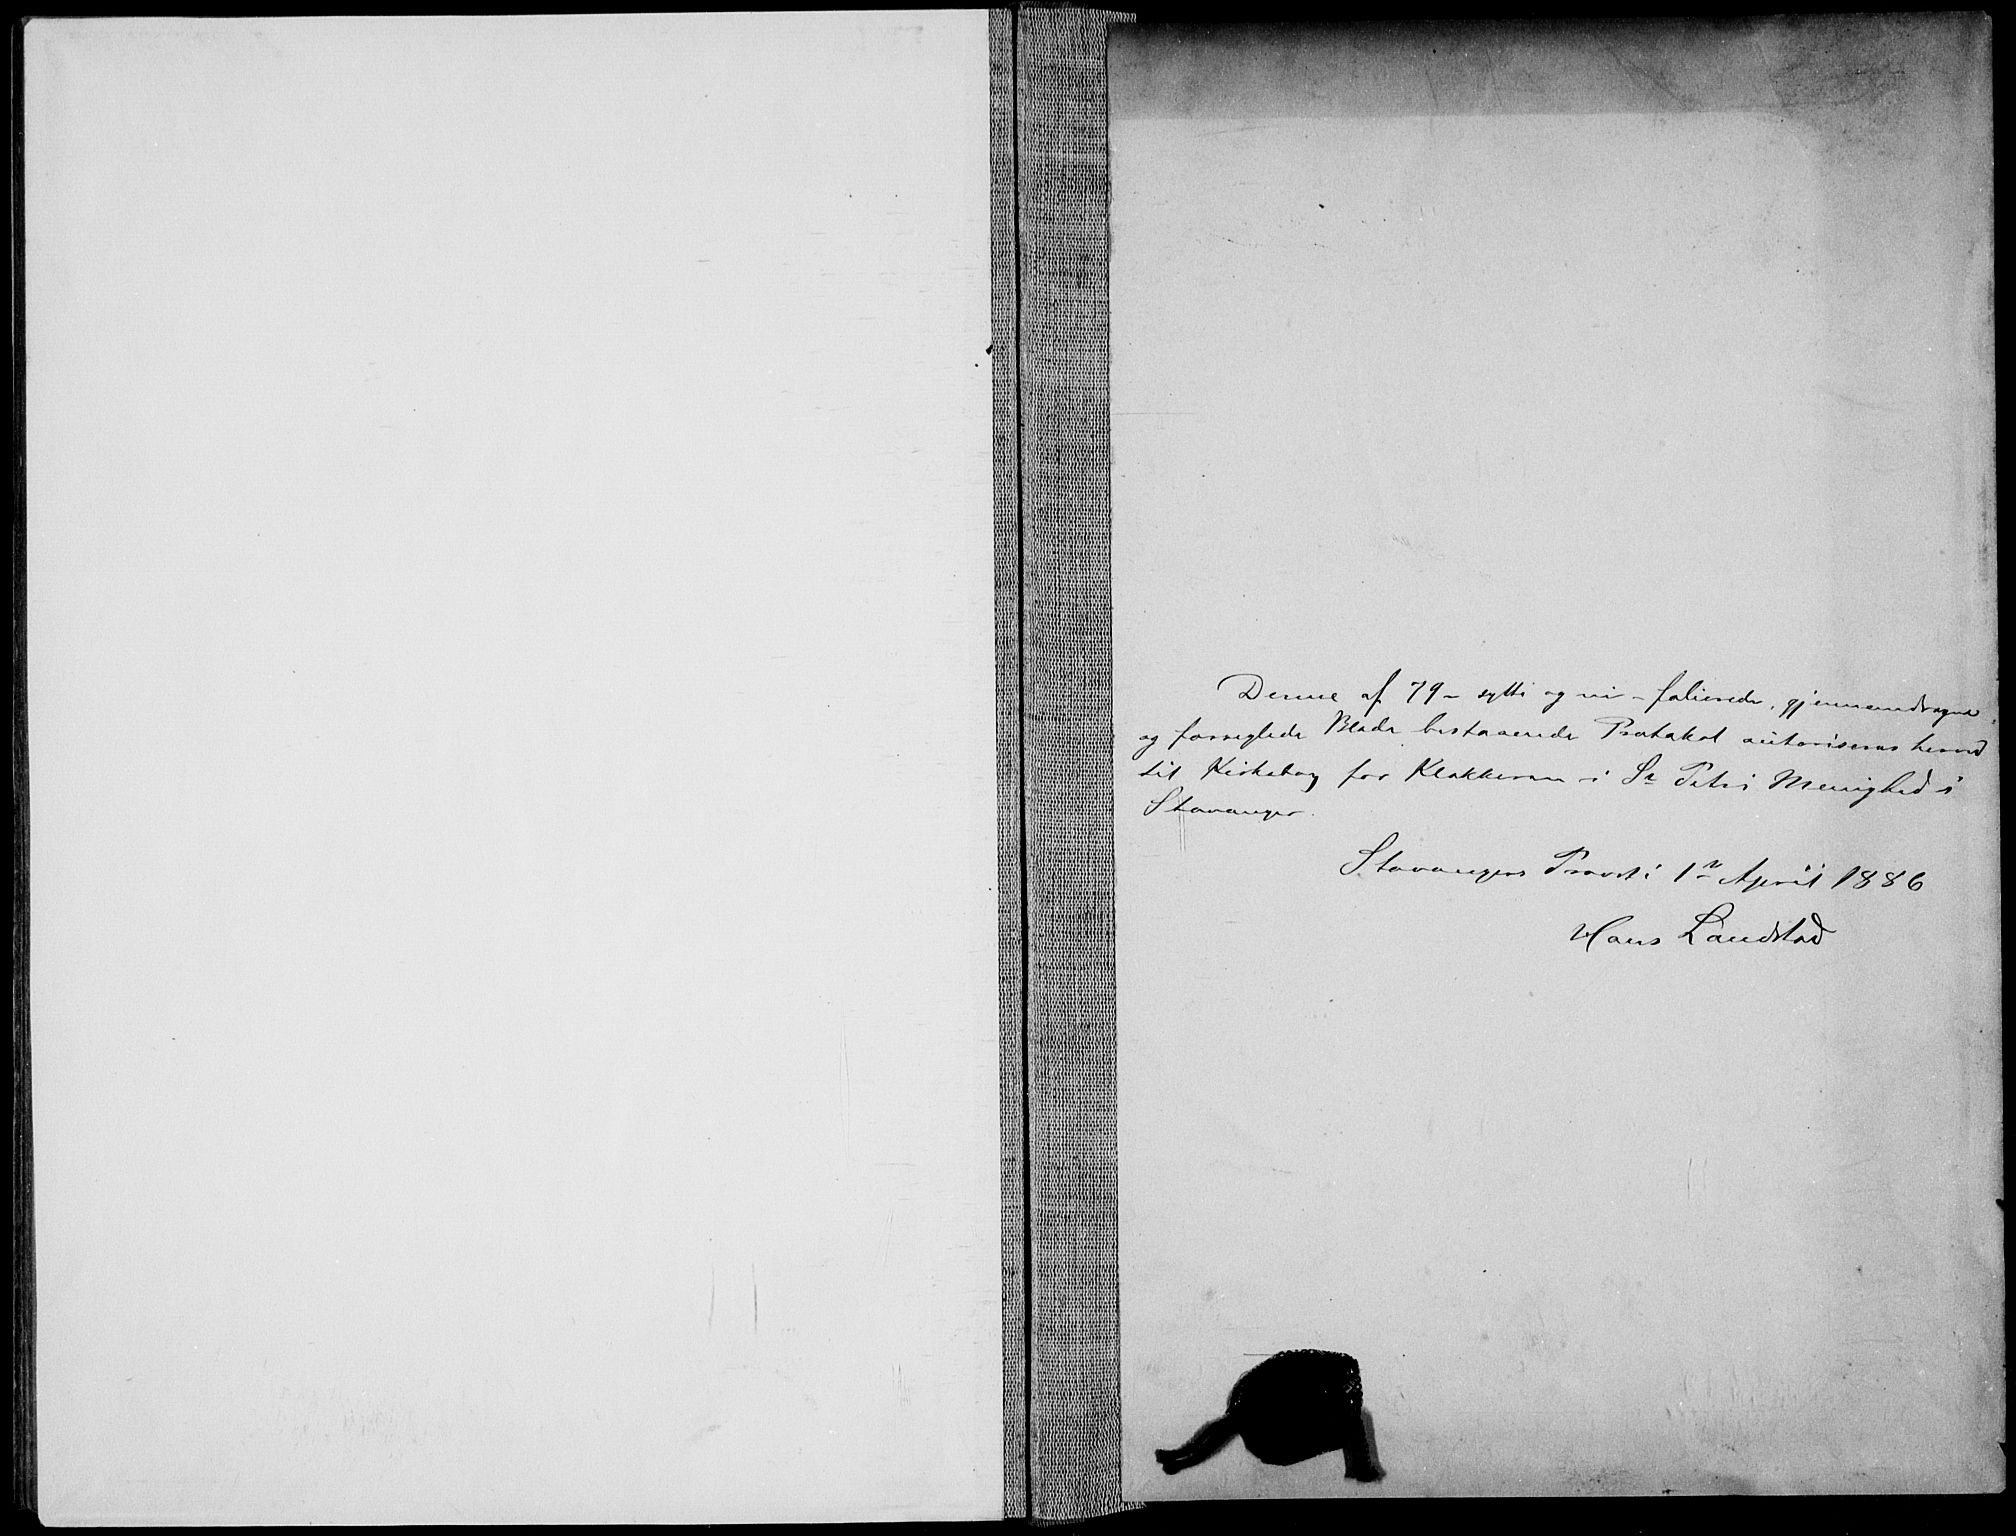 Denne af 79 - sytti og ni - folierede, gjennemdragne
og forseglede Blade bestaaende Protokol autoriseres herved
til Kirkebog for Klokkeren i St Petri Menighed i
Stavanger.
Stavangers Provsti 1ste April 1886
Hans Landstad